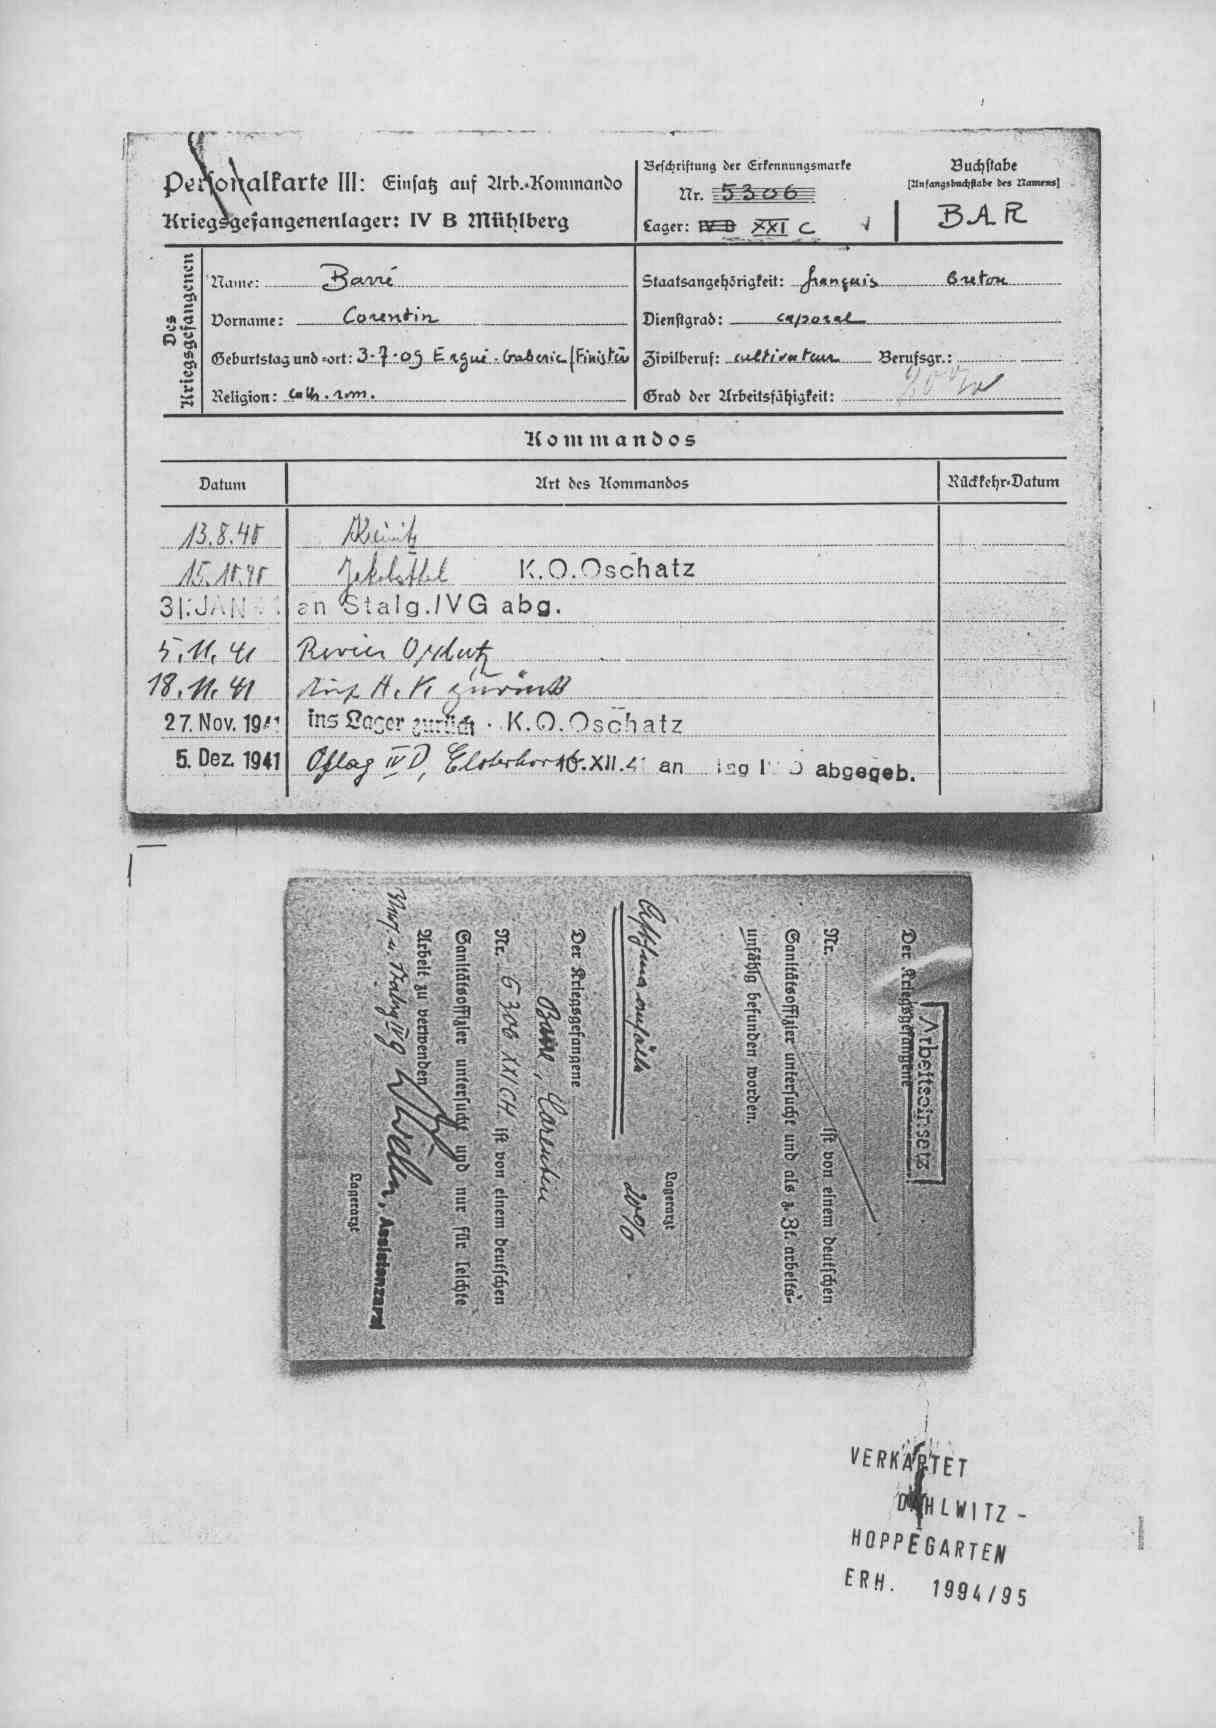 Personalkarte III: Einsatz auf Arb.-Kommando
Kriegsgefangenenlager: IV B Mühlberg
Beschriftung der Erkennungsmarke
Nr. 5306
Lager: IV B XXI C
Buchstabe
[Anfangsbuchstabe des Namens]
BAR
Des Kriegsgefangenen
Name: Barré
Vorname: Corentin
Geburtstag und -ort: 3-7-09 Ergué-Gabéric (Finistère
Religion: cath. rom.
Staatsangehörigkeit: français Breton
Dienstgrad: caporal
Zivilberuf: cultivateur Berufsgr.:
Grad der Arbeitsfähigkeit: 20%
Kommandos
Datum Art des Kommandos Rückkehr-Datum
13.8.40
15.10.40 K.O.Oschatz
31. JAN an Stalg. IVG abg.
5.11.41 Revier Oschatz
18.11.41 zurück
27. Nov. 1941 ins Lager zurück. K.O.Oschatz
5. Dez. 1941 Oflag IV D, Elsterhorst 16.XII.4 an lag I D abgegeb.
Arbeitseinsatz
Der Kriegsgefangene
Nr. ist von einem deutschen
Sanitätsoffizier untersucht und als z. Zt. arbeits-
unfähig befunden worden.
Lagerarzt
Asthma anfälle 20%
Der Kriegsgefangene
Barre, Corentin
Nr. 5306 XXI CH. ist von einem deutschen
Sanitätsoffizier untersucht und nur für leichte
Arbeit zu verwenden
Stalag IV G Assistenzarzt
Lagerarzt
VERKARTET
DAHLWITZ-
HOPPEGARTEN
ERH. 1994/95